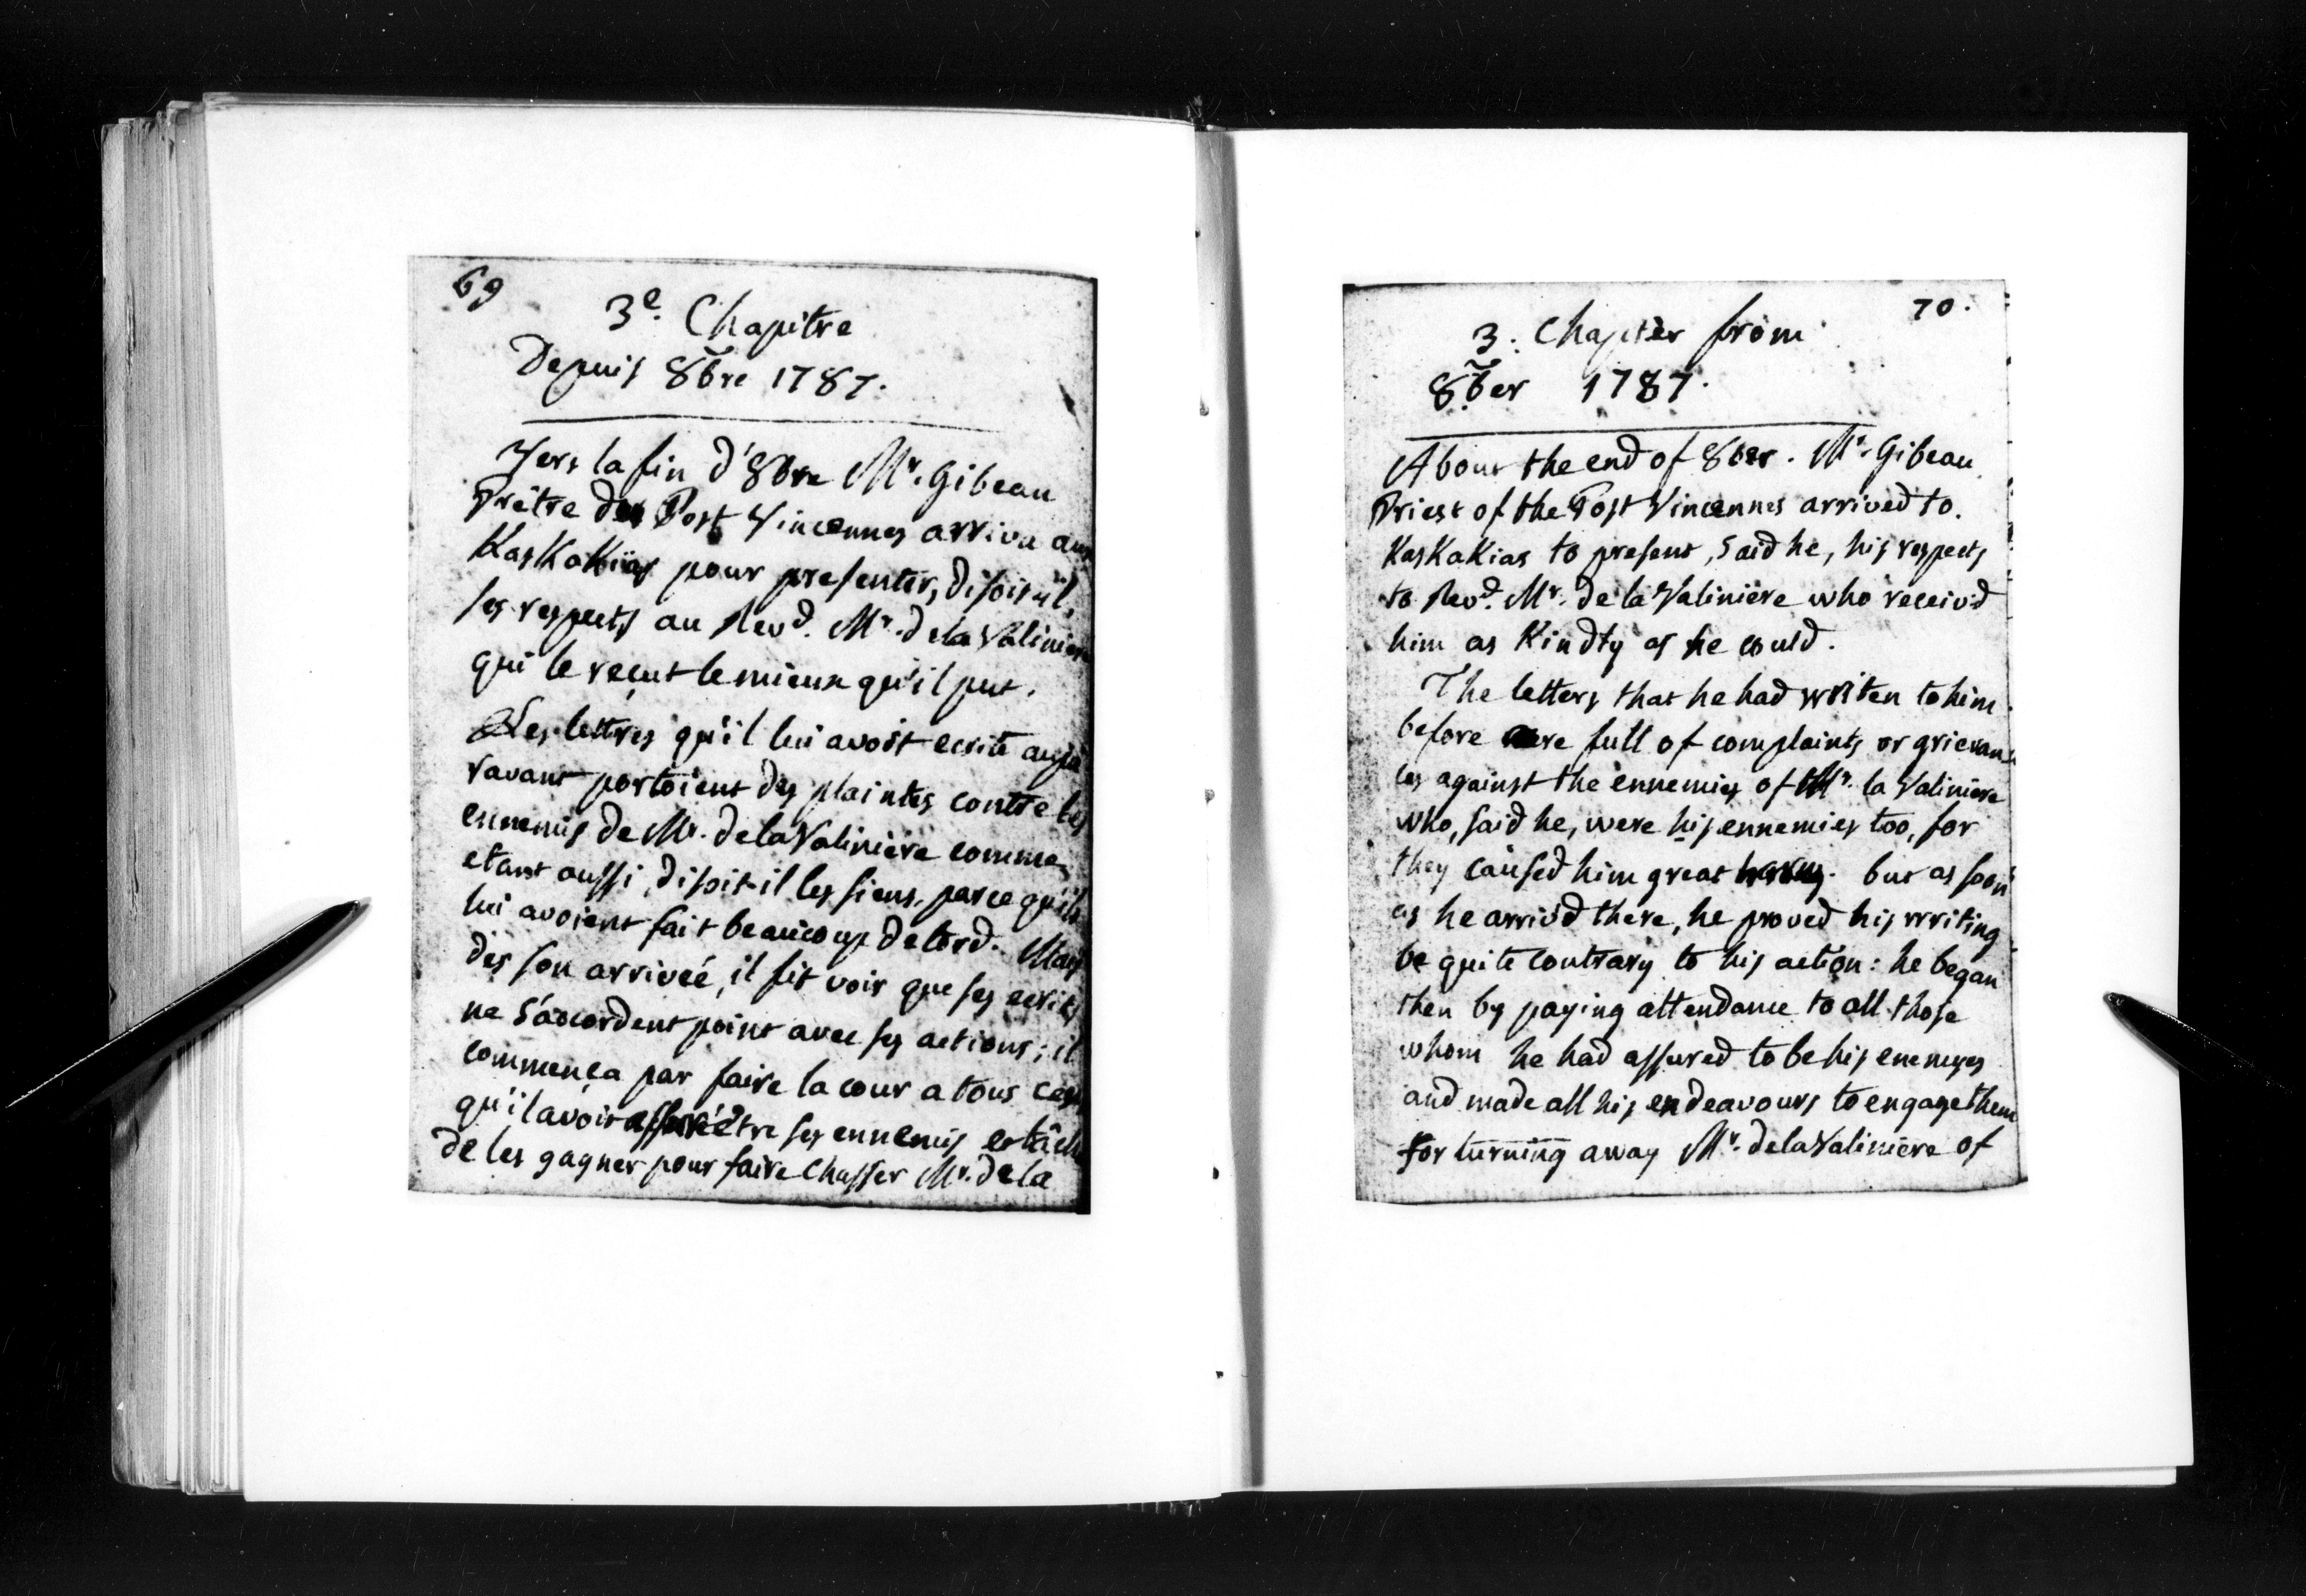 69
3e. Chapitre
Depuis 8bre 1787.
Vers la fin d'8bre Mr. Gibeau
Prêtre du Post Vincennes arriva aux
KasKaKias pour presenter, disoit il,
ses respects au Revd. Mr. de la Valiniere
qui le reçut le mieux qu'il put.
Les lettres qu'il lui avoit ecrite aupa
ravant portoient des plaintes contre les
ennemis de Mr. de la Valiniere comme
etant aussi, disoit-il les siens, parce qu'ils
lui avoient fait beaucoup de tord. Mais
dès son arriveé, il fit voir que ses ecrits
ne s'accordent point avec ses actions; il
commença par faire la cour a tous ces
qu'il avoit assuré être ses ennemis et tâch
de les gagner pour faire chasser Mr. de la
70.
3. Chapter from
8ber 1787.
About the end of 8ber. Mr. Gibeau
Priest of the Post Vincennes arrived to.
KasKaKias to present, said he, his respects
to Revd. Mr. de la Valiniere who receiv'd
him as Kindly as he could.
The letters that he had writen to him
before were full of complaints or grievan-
ces against the ennemies of Mr. la Valiniere
who, said he, were his ennemies too, for
they caused him great but as soon
as he arriv'd there, he proved his writing
be quite contrary to his action: he began
then by paying attendance to all those
whom he had assured to be his enemyes
and made all his endeavours to engage them
for turning away Mr. de la Valiniere of